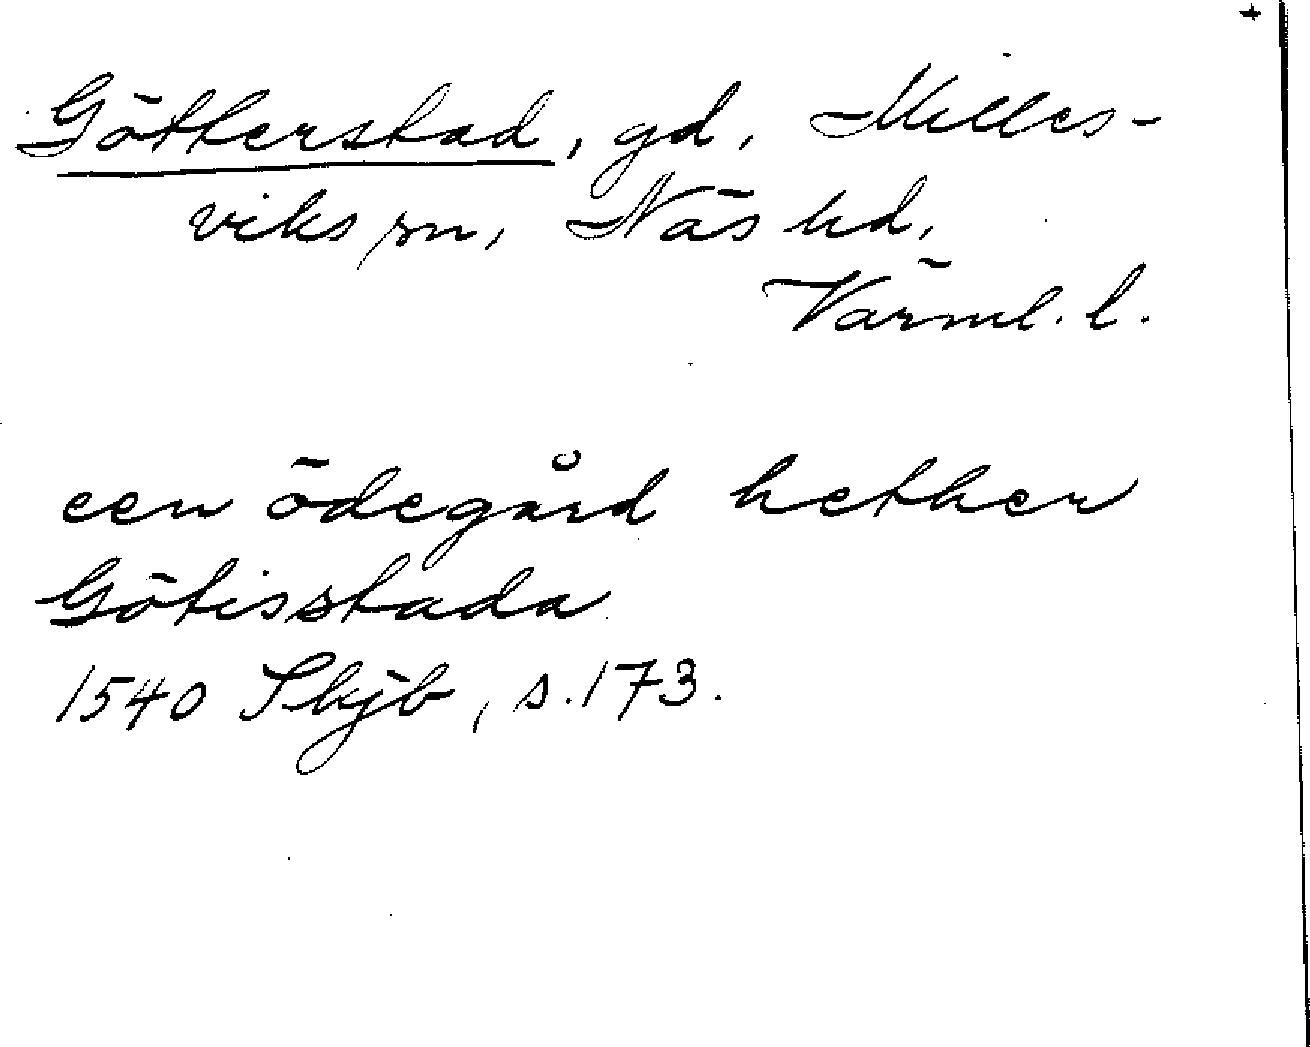 +
Götterstad, gd, Milles-
viks sn, Näs hd,
Värml. l.
een ödegård hether
Götisstada
1540 Skjb, s. 173.